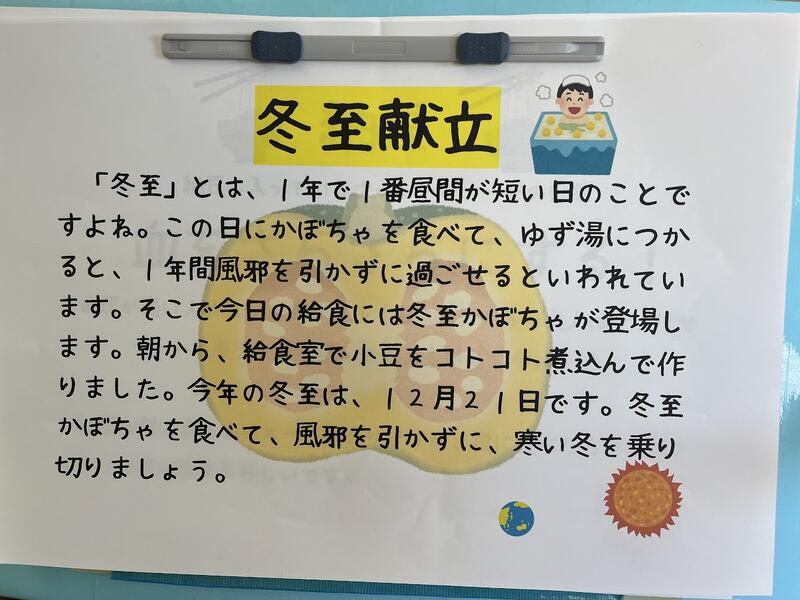 冬至献立
「冬至」とは、1年で1番昼間が短い日のことで
すよね。この日にかぼちゃを食べて、ゆず湯につか
ると、1年間風邪を引かずに過ごせるといわれてい
ます。そこで今日の給食には冬至かぼちゃが登場し
ます。朝から、給食室で小豆をコトコト煮込んで作
りました。今年の冬至は、12月21日です。冬至
かぼちゃを食べて、風邪を引かずに、寒い冬を乗り
切りましょう。